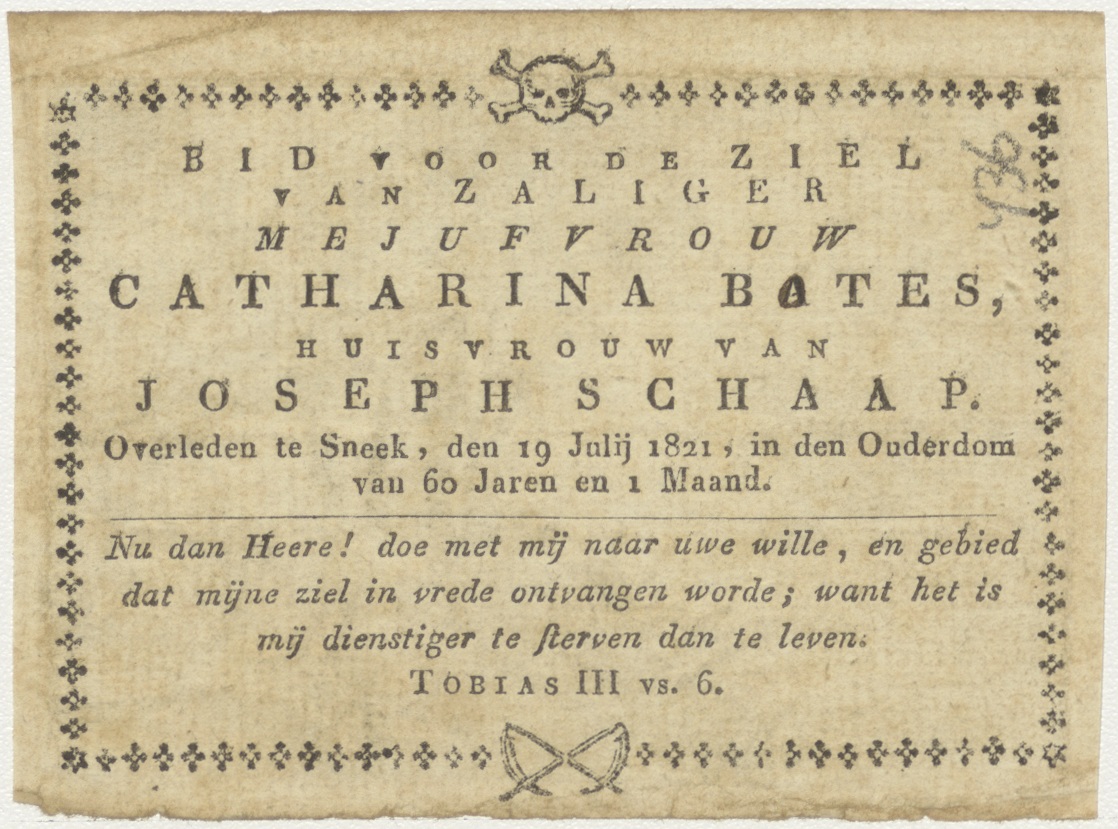 BID VOOR DE ZIEL
VAN ZALIGER
MEJUFVROUW
CATHARINA BOTES,
HUISVROUW VAN
JOSEPH SCHAAP.
Overleden te Sneek, den 19 Julij 1821, in den Ouderdom
van 60 Jaren en 1 Maand.
Nu dan Heere! doe met mij naar uwe wille, en gebied
dat mijne ziel in vrede ontvangen worde; want het is
mij dienstiger te ſterven dan te leven.
TOBIAS III vs. 6.